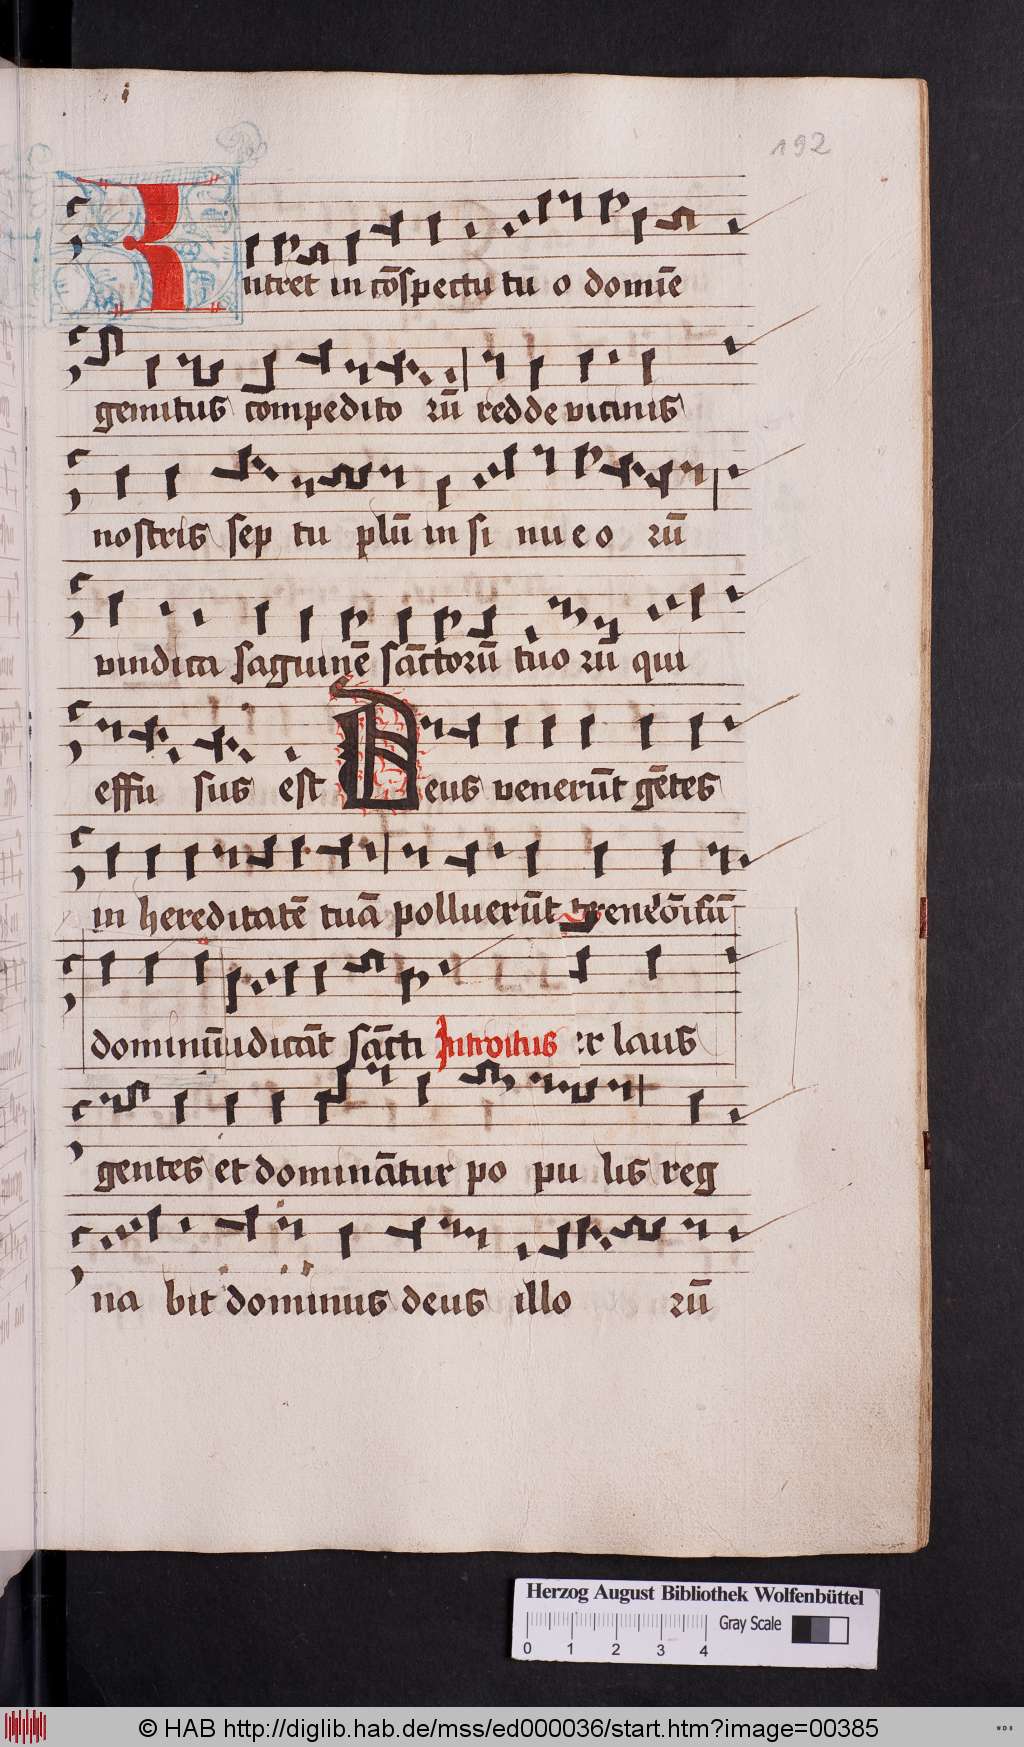 192
Intret in cōspectu tu o domīe
gemitus compedito rū redde vicinis
nostris sep tu plū in si nu e o rū
vindica saguinē sāctorū tuo rū qui
effu sus est Deus venerūt gētes
in hereditatē tuā polluerūt
dominū iudicāt sācti Introitus laus
gentes et domināntur po pu lis reg
na bit dominus deus illo rū
Herzog August Bibliothek Wolfenbüttel
Gray Scale
0 1 2 3 4
© HAB http://diglib.hab.de/mss/ed000036/start.htm?image=00385